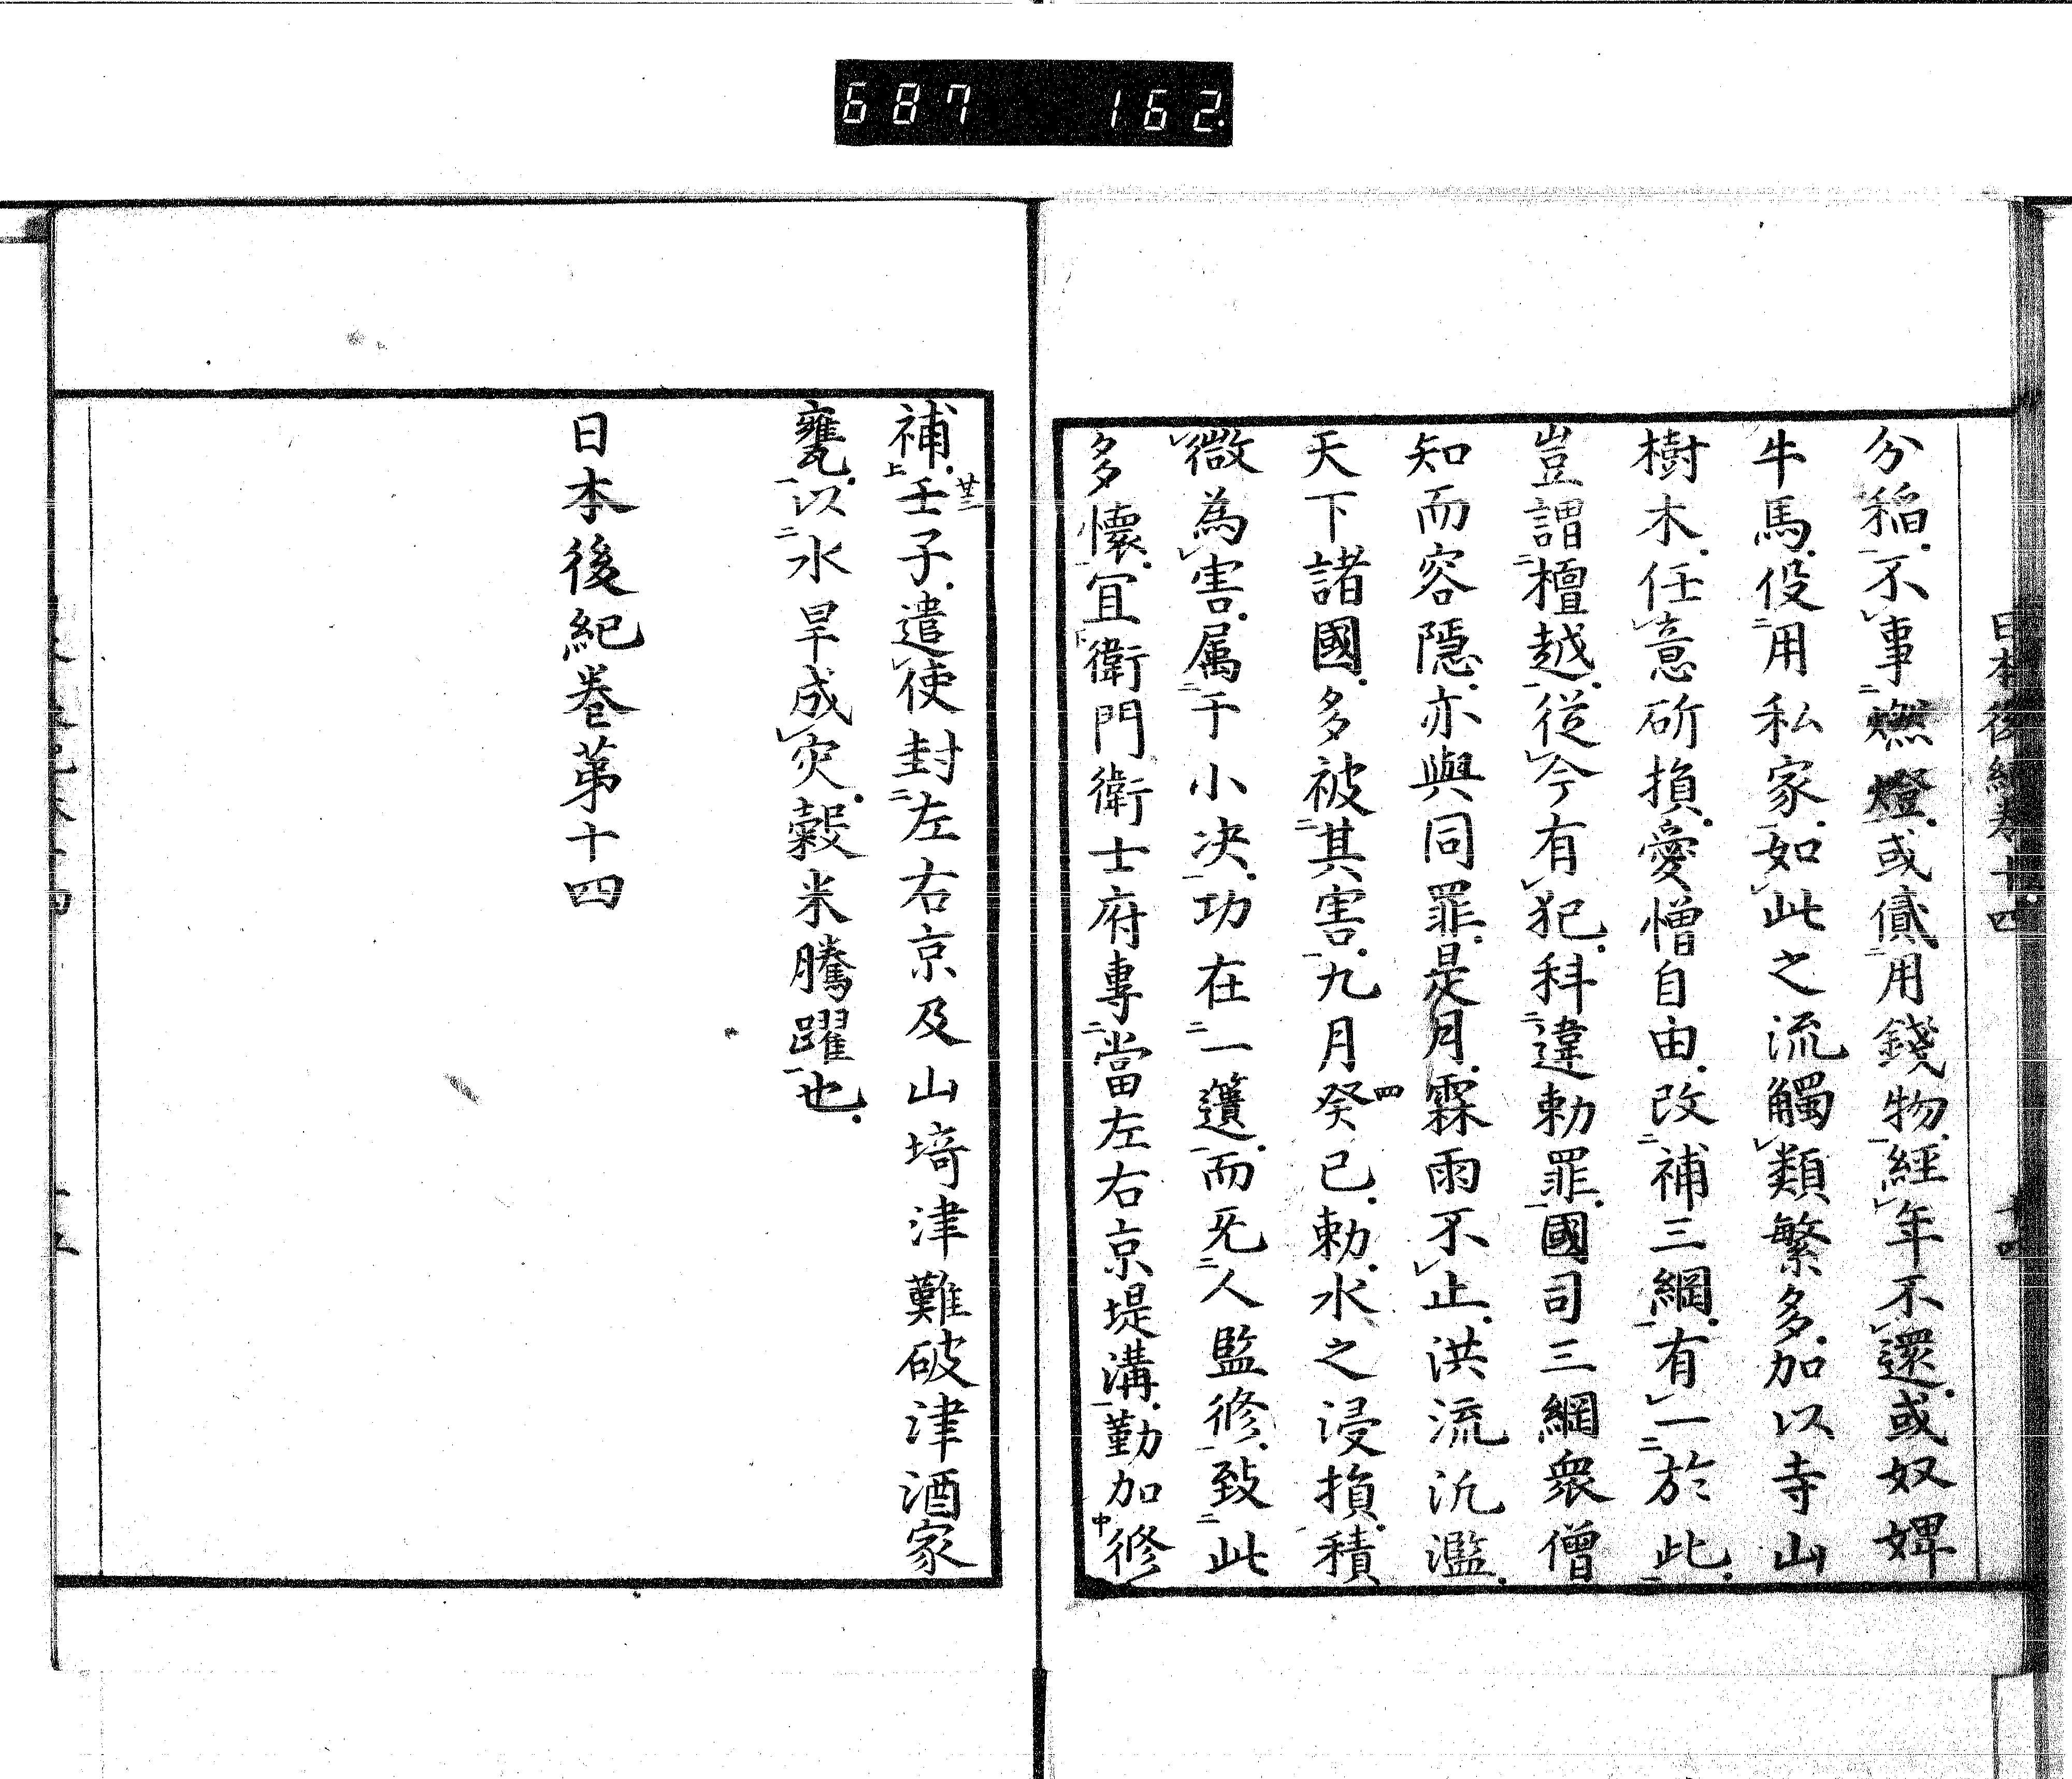 687 162.
日本後紀卷十四 十四
分稲不事燃燈或償用錢物經年不還或奴婢
牛馬役用私家如此之流觸類繁多加以寺山
樹木任意斫損愛憎自由改補三綱有一於此
豈謂檀越從今有犯科違勅罪國司三綱衆僧
知而容隱亦與同罪是月霖雨不止洪流汎濫
天下諸國多被其害九月癸巳四勅水之浸損積
微為害属于小决功在一簣而旡人監修致此
多懷冝衛門衛士府專當左右京堤溝勤加修
補壬子廿三遣使封左右京及山埼津難破津酒家
甕以水旱成灾穀米騰躍也
日本後紀巻苐十四